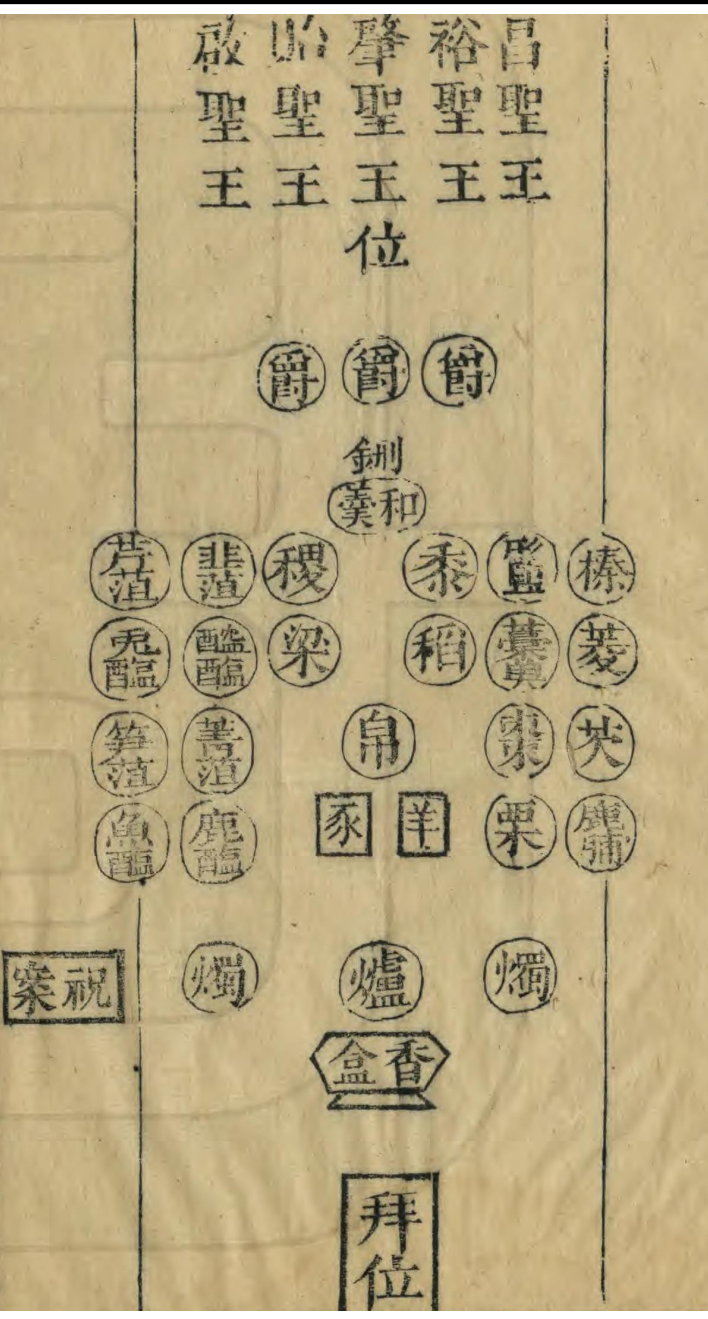 昌聖王
裕聖王
肇聖王
貽聖王
啟聖王
位
爵 爵 爵
鉶
和羹
榛 形鹽 黍 稷 韭菹 芹菹
菱 稻 梁 醓醢 兔醢
芡 棗 帛 菁菹 笋菹
栗 羊 豕 鹿醢 魚醢
燭 爐 燭 祝案
香盒
拜位